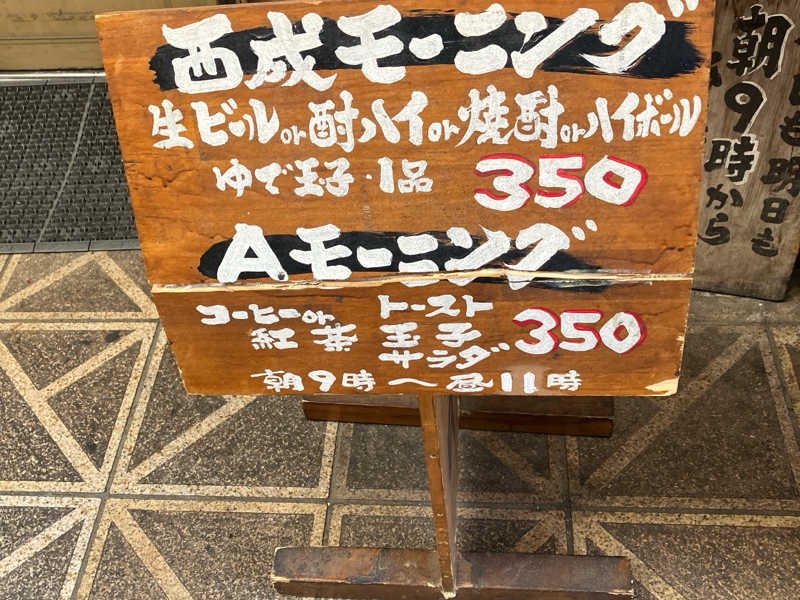 西成モーニング
生ビールor酎ハイor焼酎orハイボール
ゆで玉子・1品 350
A.モーニング
コーヒーor 紅茶
トースト
玉子
サラダ
350
朝9時〜昼11時
朝9時から
明日も